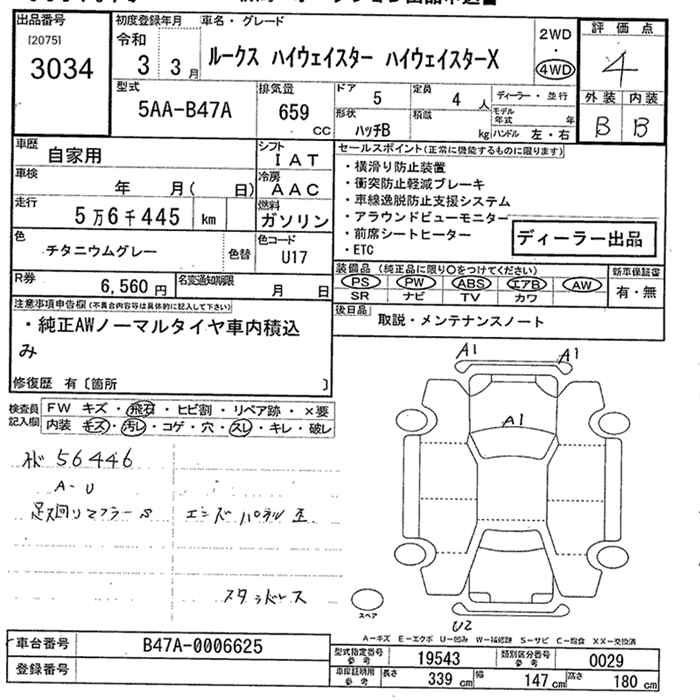 出品番号
[2075]
3034
初度登録年月
令和
3 3月
車名・グレード
ルークス ハイウェイスター ハイウェイスターX
2WD
・
4WD
評価点
4
外装 内装
B B
型式
5AA-B47A
排気量
659
CC
ドア
5
定員
4 人
ディーラー・並行
形状
ハッチB
積載
kg
モデル年式 年
ハンドル 左・右
車歴
自家用
シフト
IAT
車検
年 月( 日)
冷房
AAC
走行
5万6千445 km
燃料
ガソリン
色
チタニウムグレー
色替
色コード
U17
R券
6,560円
名変通知期限
月 日
セールスポイント(正常に機能するものに限ります)
・横滑り防止装置
・衝突防止軽減ブレーキ
・車線逸脱防止支援システム
・アラウンドビューモニター
・前席シートヒーター
・ETC
ディーラー出品
装備品 (純正品に限り○をつけてください)
PS PW ABS エアB AW
SR ナビ TV カワ
新車保証書
有・無
後日品
取説・メンテナンスノート
注意事項申告欄(不具合内容等は具体的に記入して下さい)
・純正AWノーマルタイヤ車内積込
み
修復歴 有〔箇所 〕
検査員
記入欄
FW キズ・飛石・ヒビ割・リペア跡・×要
内装 キズ・汚レ・コゲ・穴・スレ・キレ・破レ
56446
A-U
足廻りマフラーS
エンドパネル歪
スタッドレス
A1
A1
A1
U2
スペア
A-キズ E-エクボ U-凹み W-補修跡 S-サビ C-腐食 XX-交換済
車台番号
B47A-0006625
登録番号
型式指定番号
参考
19543
類別区分番号
参考
0029
車庫証明用
参考
長さ
339 cm
幅
147 cm
高さ
180 cm